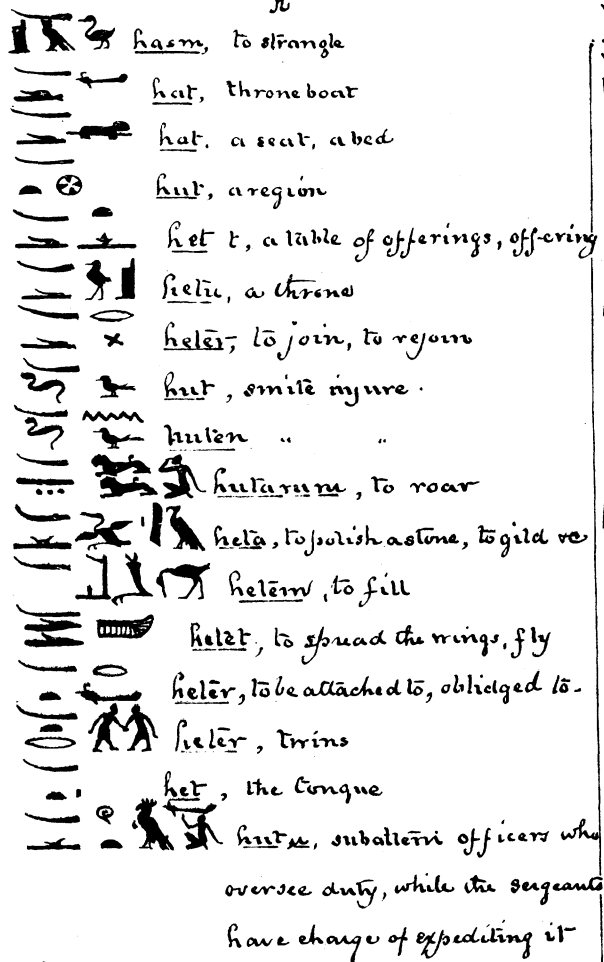 hasm, to strangle
hat, throne boat
hat. a seat, a bed
hut, a region
het t, a table of offerings, offering
hetu, a throne
heter, to join, to rejoin
hut, smite injure.
huten " "
hutarum, to roar
heta, to polish a stone, to gild &c
hetem, to fill
hetet, to spread the wings, fly
heter, to be attached to, oblidged to-
heter, twins
het, the tongue
hutu, subaltern officers who
oversee duty, while the sergeants
have charge of expediting it